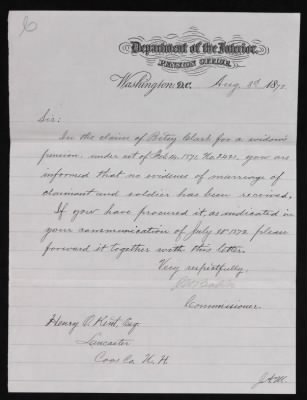 Department of the Interior,
PENSION OFFICE,
Washington, D.C. Aug. 3d 187
Sir:
In the claim of Betsy Clark for a widow
pension, under act of Feb. 14, 1871, No. you are
informed that no evidence of marriage of
claimant and soldier has been received.
If you have procured it, as indicated in
your communication of July 15th 1872 please
forward it together with this letter.
Very respectfully,
Commissioner.
Henry O. Kent, Esq.
Lancaster
Coos Co. N. H.